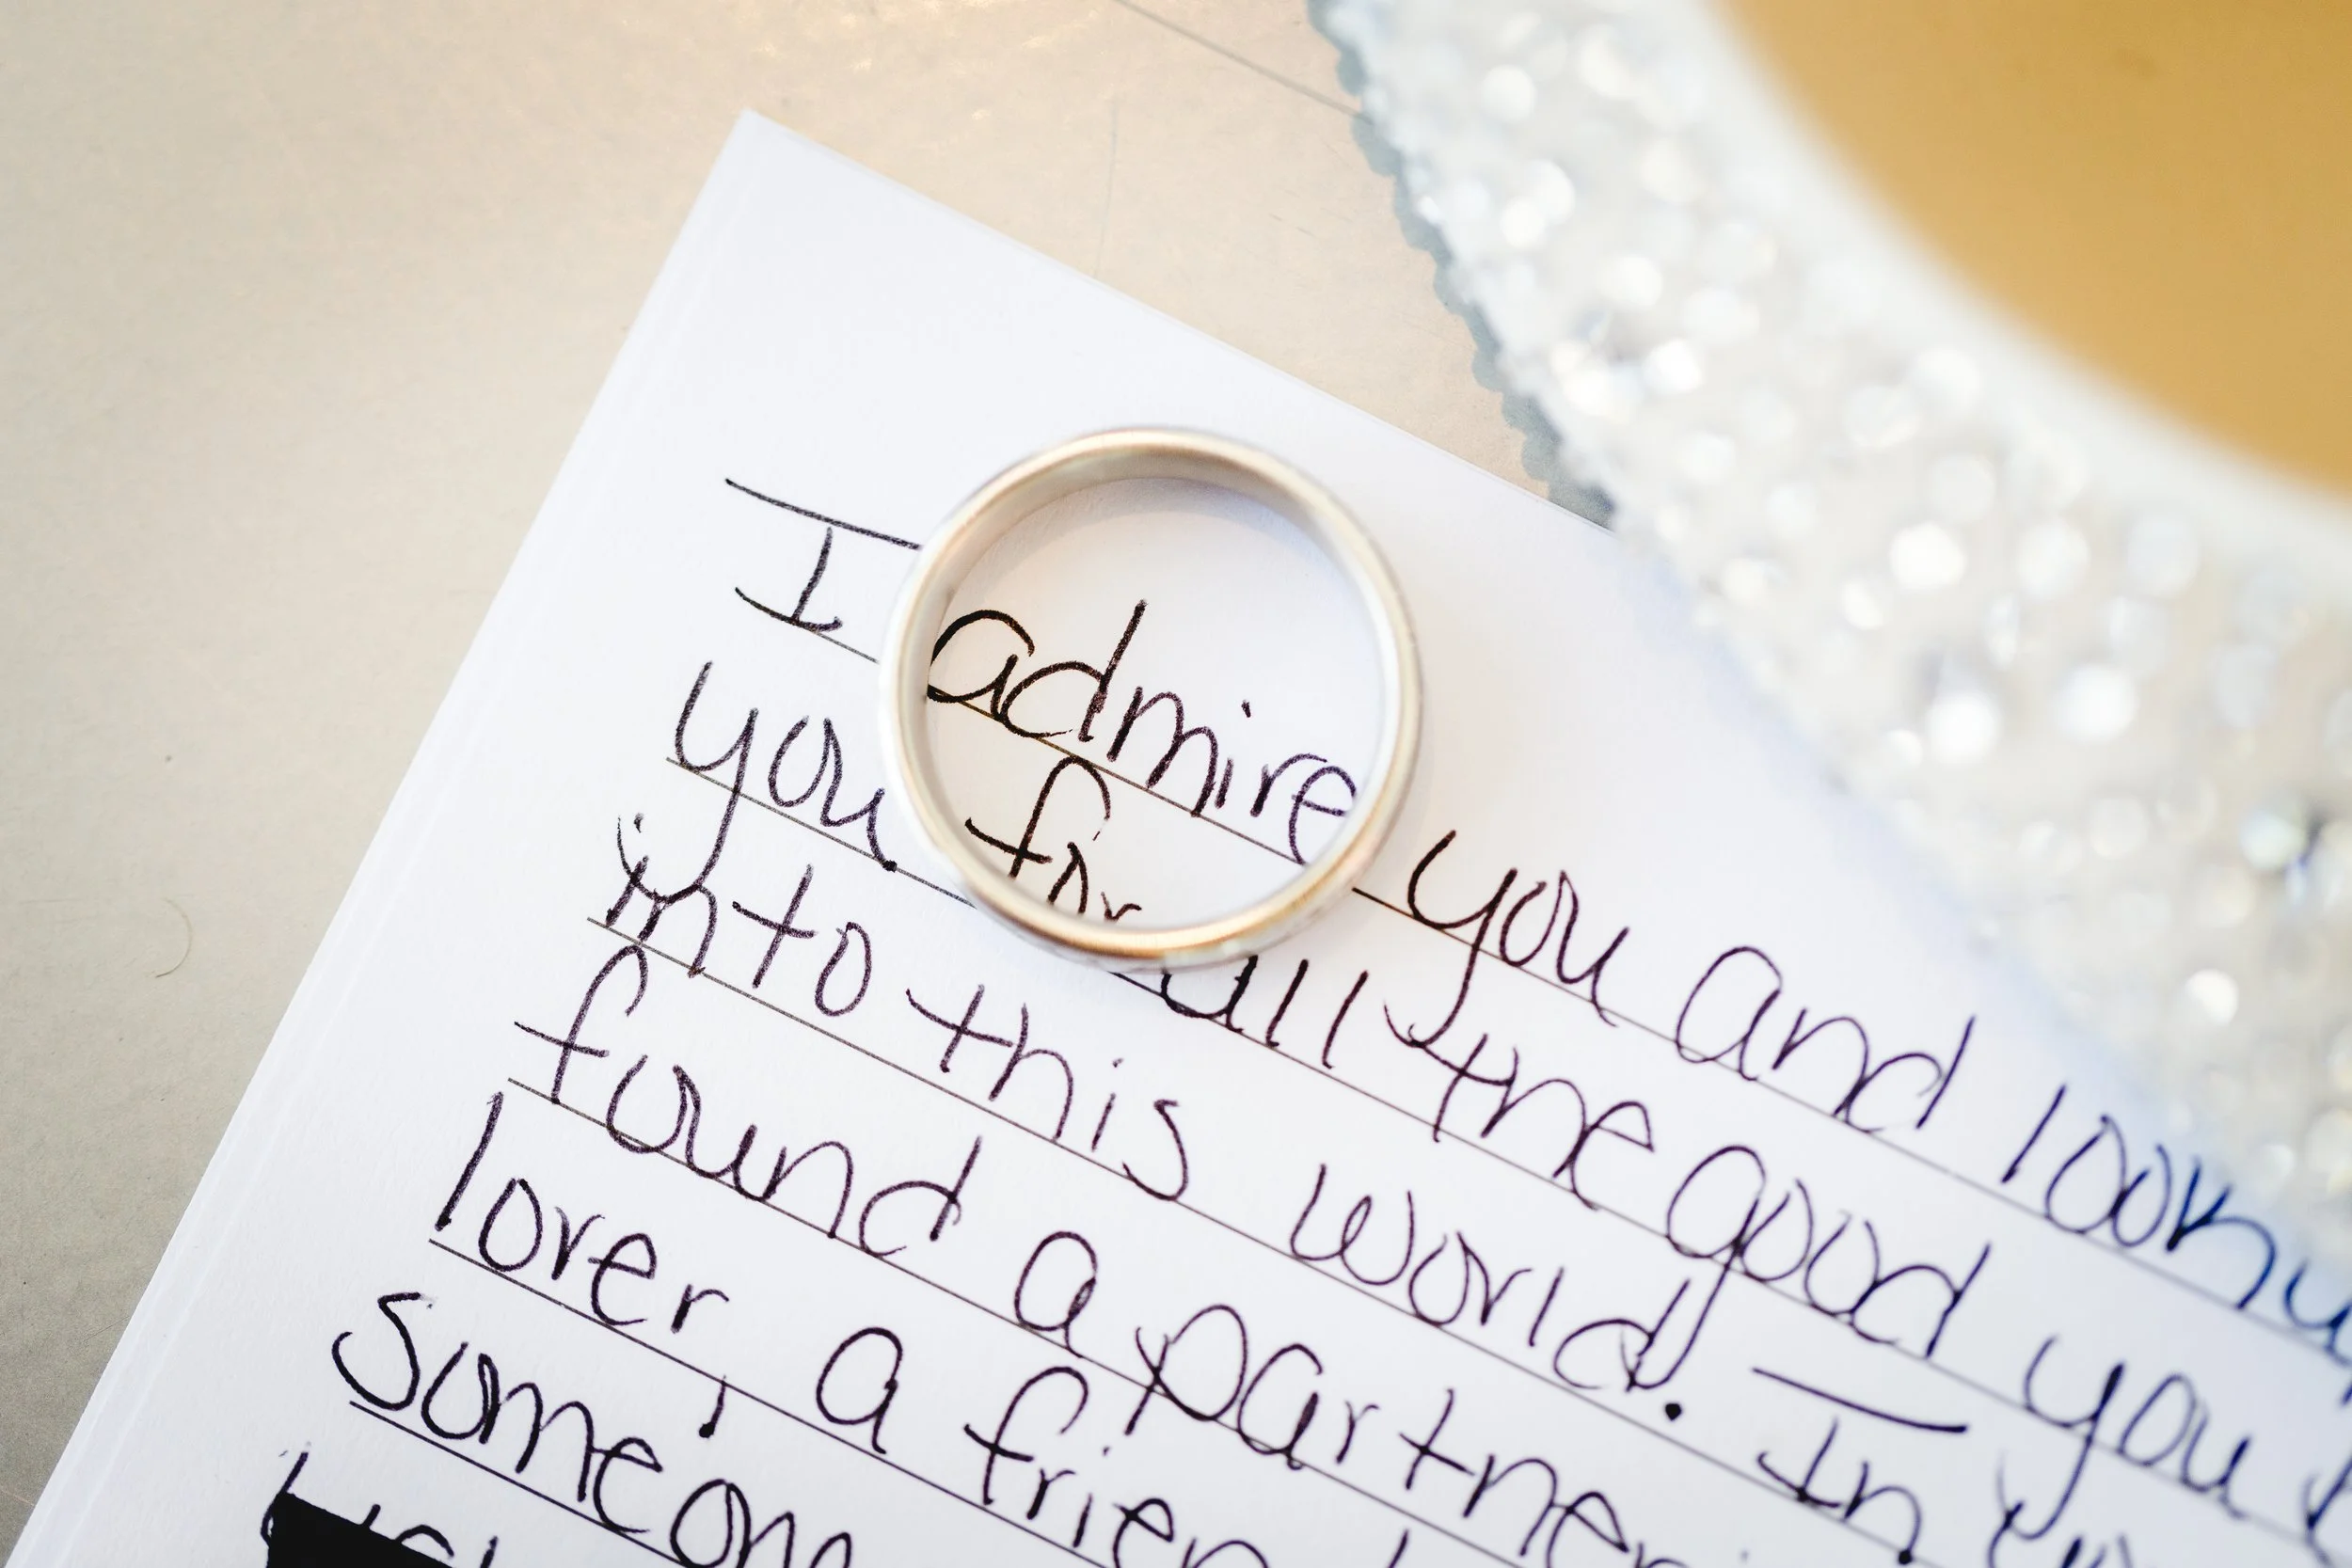 I admire you and
you for all the good you
into this world. In
found a partner
lover, a
someone